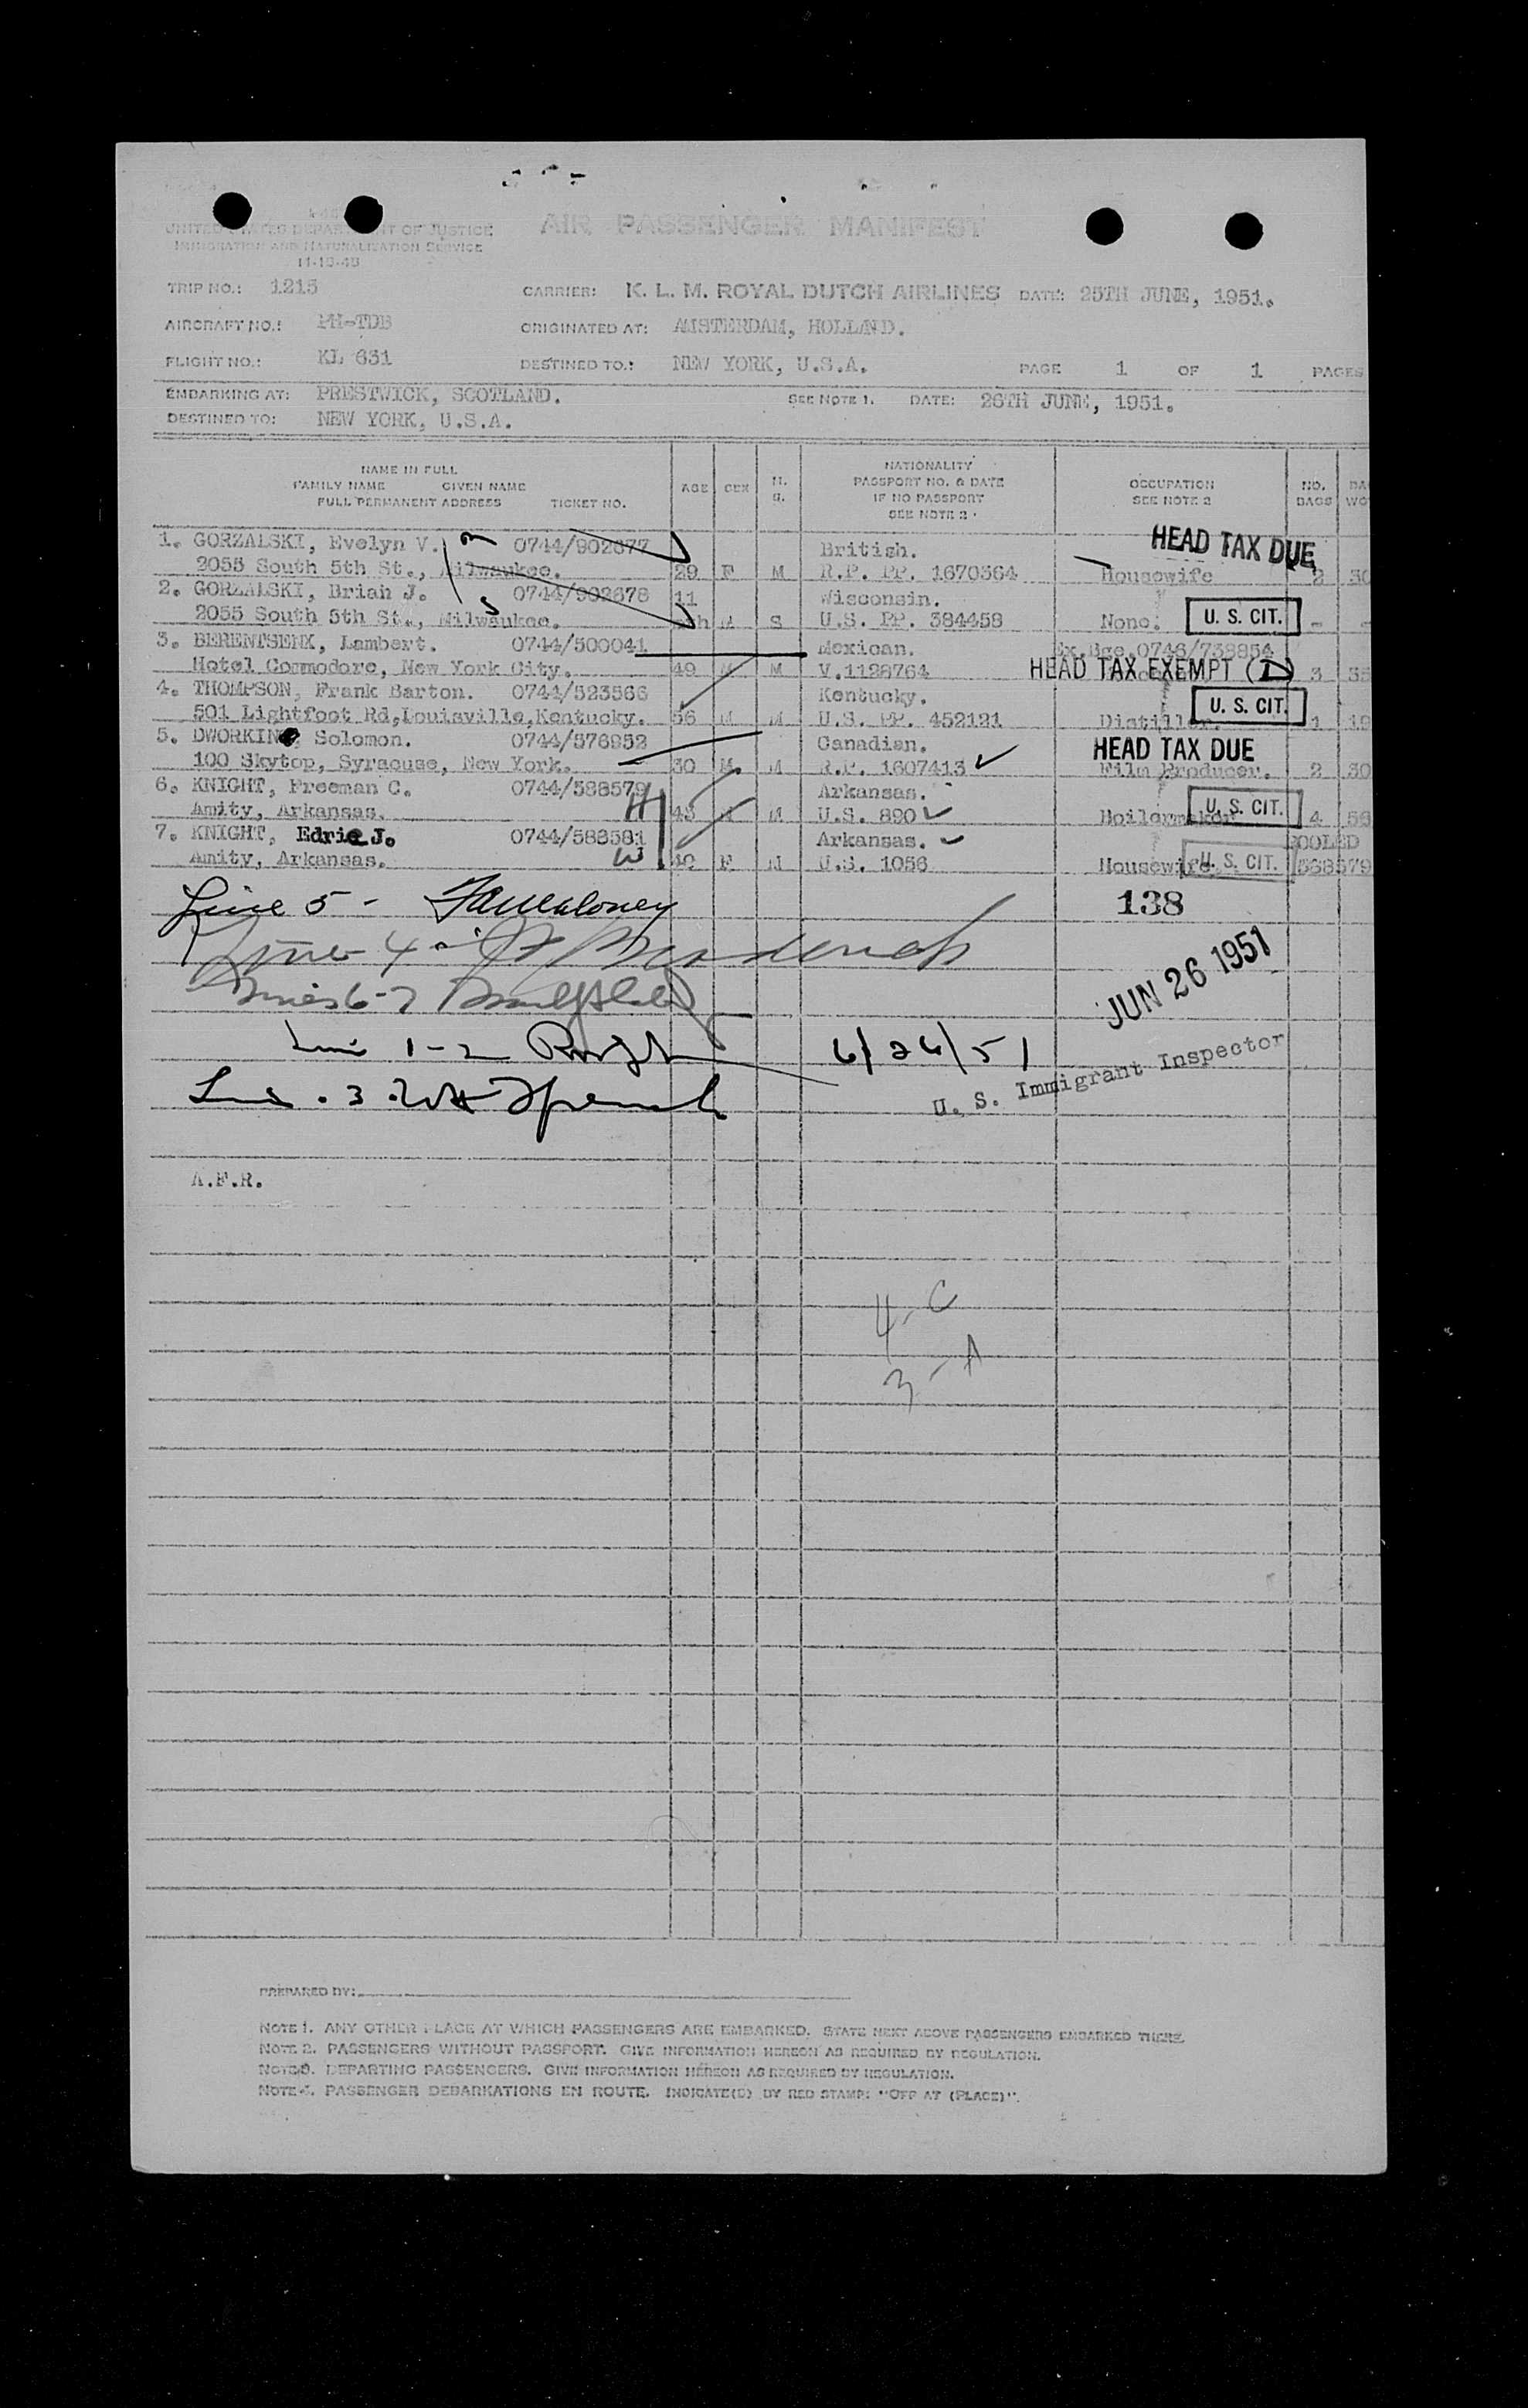 UNITED STATES DEPARTMENT OF JUSTICE
IMMIGRATION AND NATURALIZATION SERVICE
11-18-48
AIR PASSENGER MANIFEST
TRIP NO.: 1215 CARRIER: K. L. M. ROYAL DUTCH AIRLINES DATE: 25TH JUNE, 1951.
AIRCRAFT NO.: PH-TDB ORIGINATED AT: AMSTERDAM, HOLLAND.
FLIGHT NO.: KL 631 DESTINED TO.: NEW YORK, U.S.A. PAGE 1 OF 1 PAGES
EMBARKING AT: PRESTWICK, SCOTLAND. SEE NOTE 1. DATE: 26TH JUNE, 1951.
DESTINED TO: NEW YORK, U.S.A.
NAME IN FULL
FAMILY NAME GIVEN NAME
FULL PERMANENT ADDRESS TICKET NO.
AGE SEX
NATIONALITY
PASSPORT NO. & DATE
IF NO PASSPORT
SEE NOTE 2
OCCUPATION
SEE NOTE 2
NO.
BAGS
1. GORZALSKI, Evelyn V. 0744/902677 British. HEAD TAX DUE
2055 South 5th St., Milwaukee. 29 F M R.P. PP. 1670364 Housewife 2 30
2. GORZALSKI, Brian J. 0744/902678 11 Wisconsin.
2055 South 5th St., Milwaukee. M S U.S. PP. 384458 None. U. S. CIT. -
3. BERENTSENX, Lambert. 0744/500041 Mexican. Ex.Bge.0746/738854
Hotel Commodore, New York City. 49 M M V.1128764 HEAD TAX EXEMPT (D) 3
4. THOMPSON, Frank Barton. 0744/523566 Kentucky.
501 Lightfoot Rd,Louisville,Kentucky. 56 M M U.S. PP. 452121 Distiller. U. S. CIT. 1 19
5. DWORKIN, Solomon. 0744/576952 Canadian. HEAD TAX DUE
100 Skytop, Syracuse, New York. 30 M M R.P. 1607413 Film Producer. 2 30
6. KNIGHT, Freeman C. 0744/588579 Arkansas.
Amity, Arkansas. H 43 M M U.S. 890 Boilermaker U. S. CIT. 4 56
7. KNIGHT, Edrie J. 0744/588581 Arkansas. POOLED
Amity, Arkansas. W 40 F M U.S. 1056 Housewife U. S. CIT. 588579
Line 5 - 138
Line 4 -
Lines 6-7
JUN 26 1951
Line 1-2 6/26/51
U. S. Immigrant Inspector
3
A.F.R.
4-C
3-A
PREPARED BY:
NOTE 1. ANY OTHER PLACE AT WHICH PASSENGERS ARE EMBARKED. STATE NEXT ABOVE PASSENGERS EMBARKED THERE.
NOTE 2. PASSENGERS WITHOUT PASSPORT. GIVE INFORMATION HEREON AS REQUIRED BY REGULATION.
NOTE 3. DEPARTING PASSENGERS. GIVE INFORMATION HEREON AS REQUIRED BY REGULATION.
NOTE 4. PASSENGER DEBARKATIONS EN ROUTE. INDICATE(D) BY RED STAMP: "OFF AT (PLACE)".